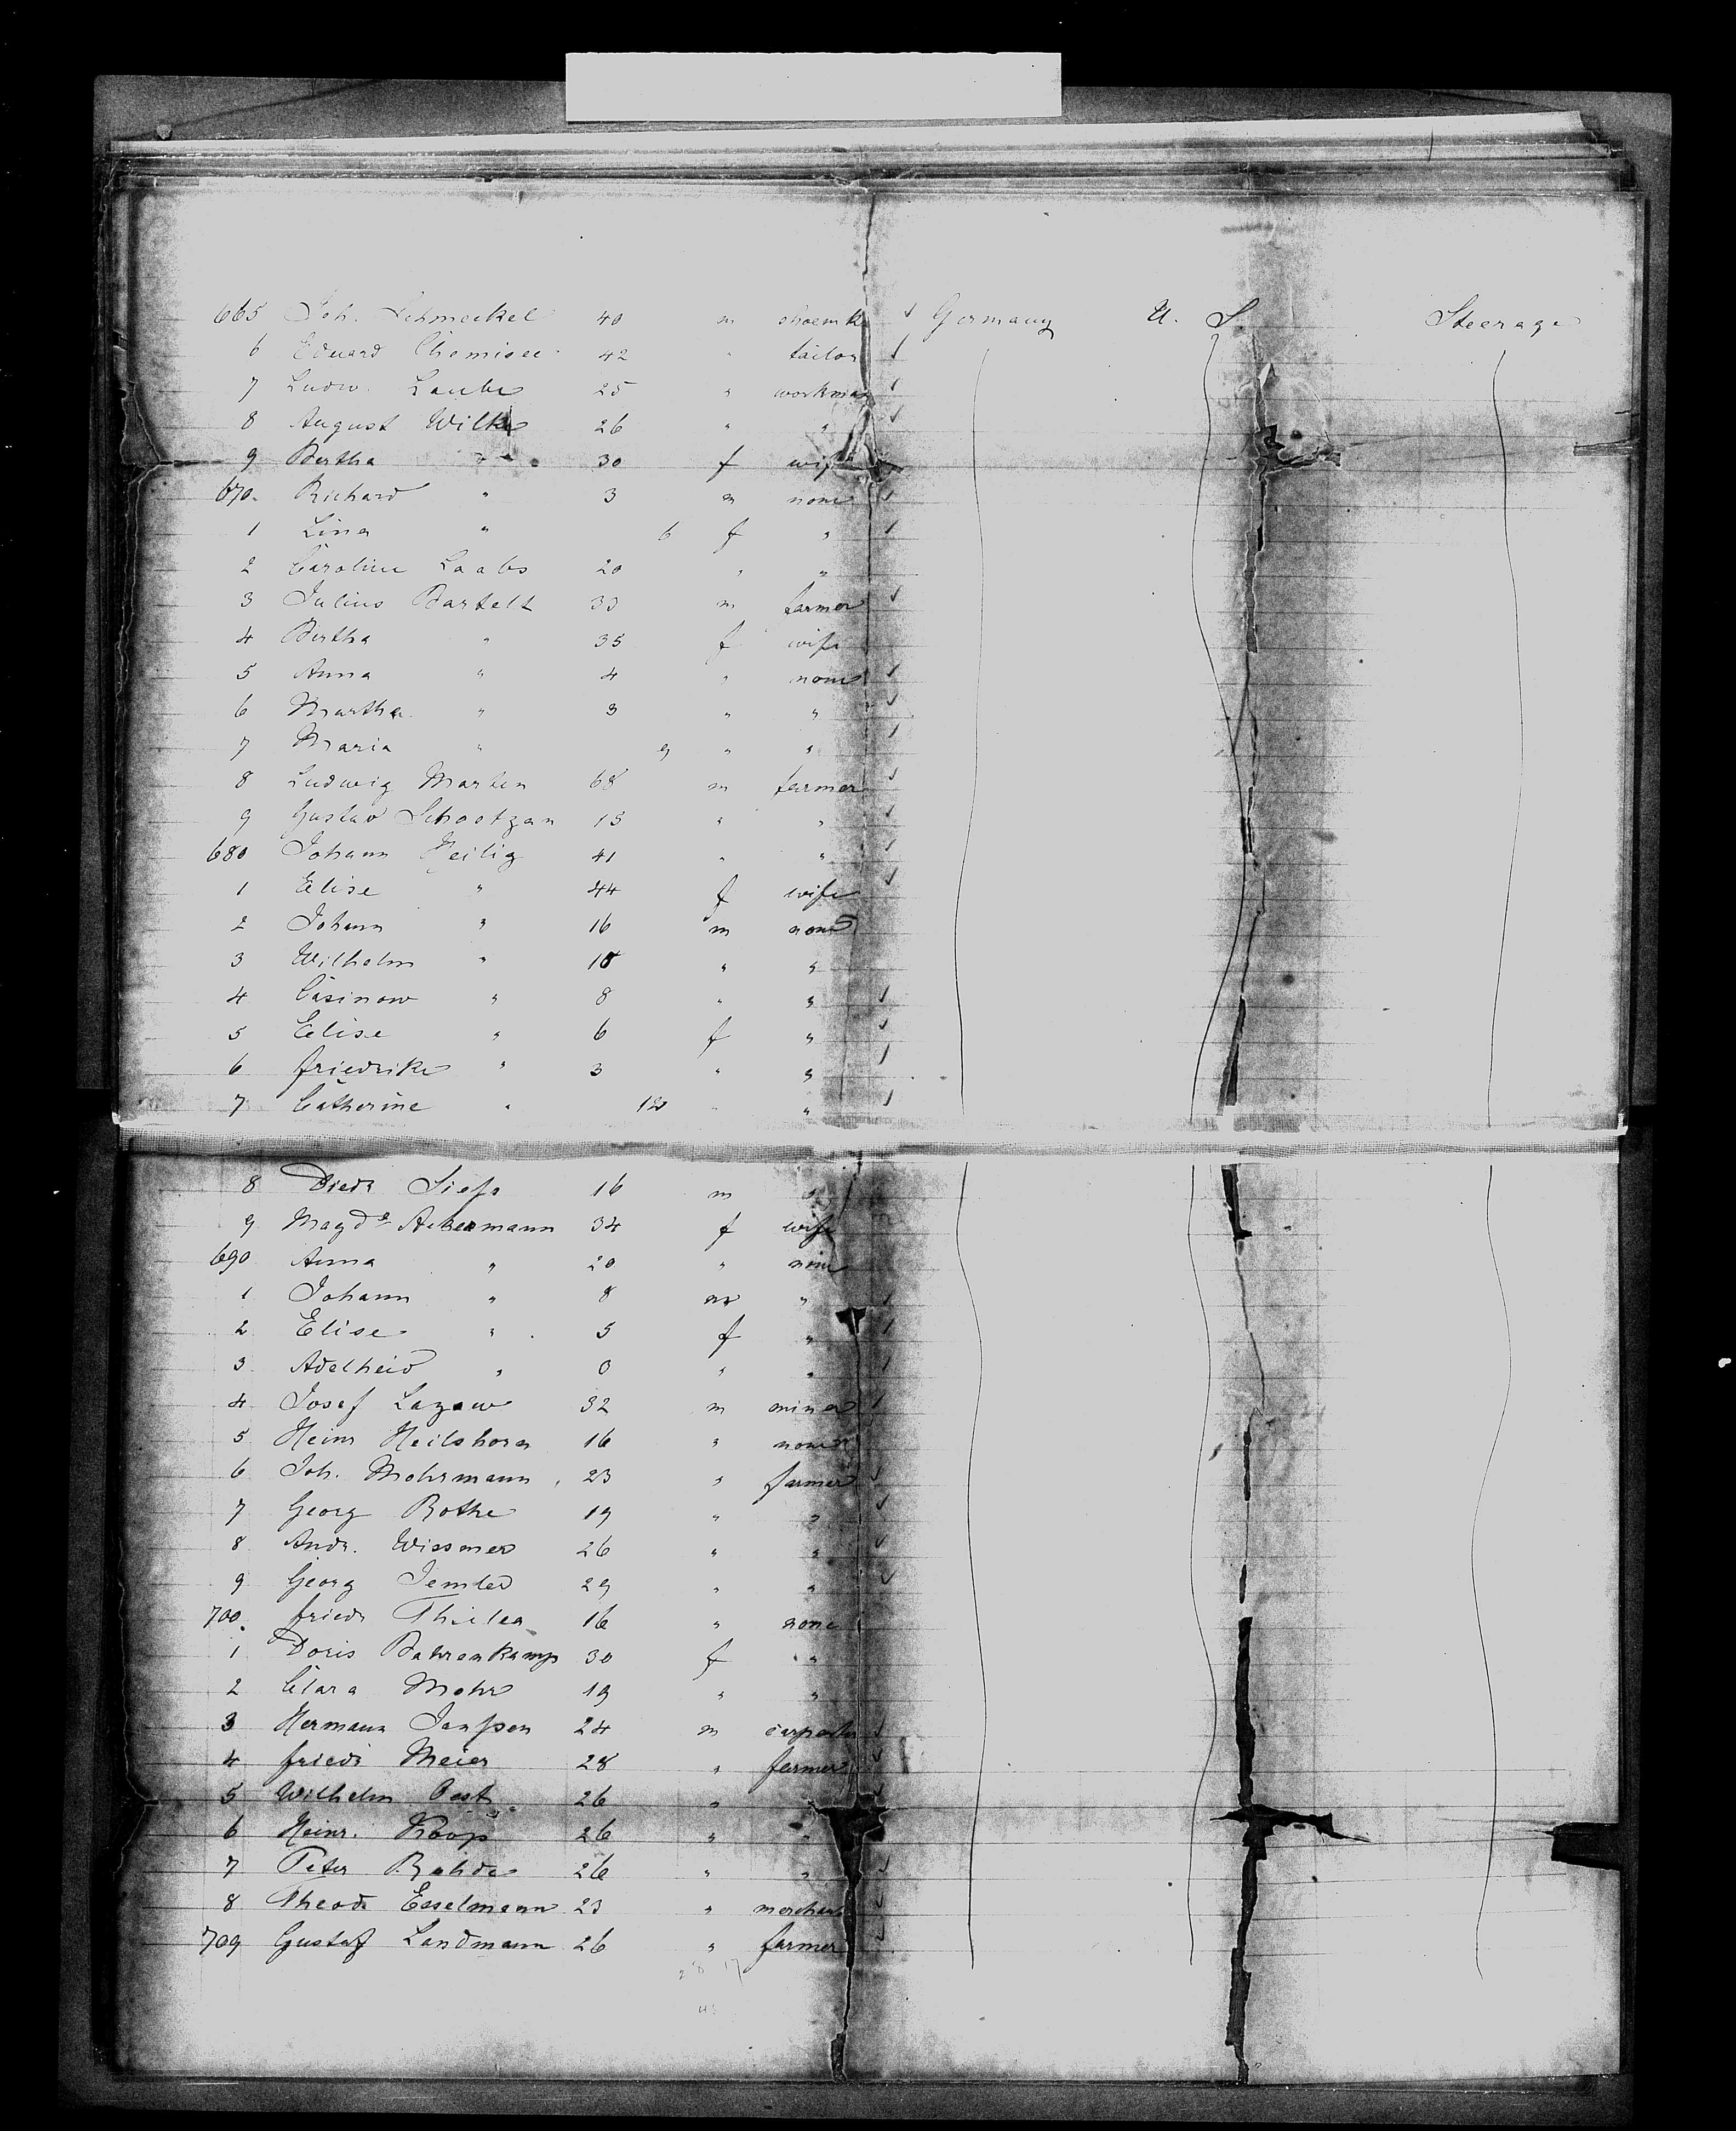 665 Joh. Schmeckel 40 m shoemk ✓ Germany U. S. Steerage
6 Eduard 42 " tailor ✓
7 Ludw. Laube 25 " workman ✓
8 August Wilke 26 " " ✓
9 Bertha " 30 f wife
670. Richard " 3 m none ✓
1 Lina " 6 f " ✓
2 Caroline Laabs 20 " "
3 Julius Bartelt 33 m farmer ✓
4 Bertha " 35 f wife
5 Anna " 4 " none ✓
6 Martha " 3 " " ✓
7 Maria " 9 " " ✓
8 Ludwig Marten 68 m farmer ✓
9 Gustav Schootzan 13 " " ✓
680 Johann Heilig 41 " " ✓
1 Elise " 44 f wife ✓
2 Johann " 16 m none
3 Wilhelm " " "
4 Casinow " 8 " " ✓
5 Elise " 6 f " ✓
6 Friedrike " 3 " " ✓
7 Catherine " " " ✓
8 Diedr 16 m "
9 Magda Ackermann 34 f wife
690 Anna " 20 " none
1 Johann " 8 m " ✓
2 Elise " 5 f " ✓
3 Adelheid " 0 " " ✓
4 Josef Lazow 32 m miner ✓
5 Heinr Heilshorn 16 " none
6 Joh. Mohrmann 23 " farmer ✓
7 Georg Rothe 19 " " ✓
8 Andr. Wissmer 26 " " ✓
9 Georg 29 " " ✓
700. Friedr 16 " none
1 Doris Bahrenkamp 30 f "
2 Clara Mohr 19 " "
3 Hermann Janssen 24 m carpenter ✓
4 Friedr Meier 28 " farmer ✓
5 Wilhelm 26 " ✓
6 Heinr. Koop 26 " "
7 Peter Rohde 26 " " ✓
8 Theodr Esselmann 23 " merchant ✓
709 Gustaf Landmann 26 " farmer ✓
28 17